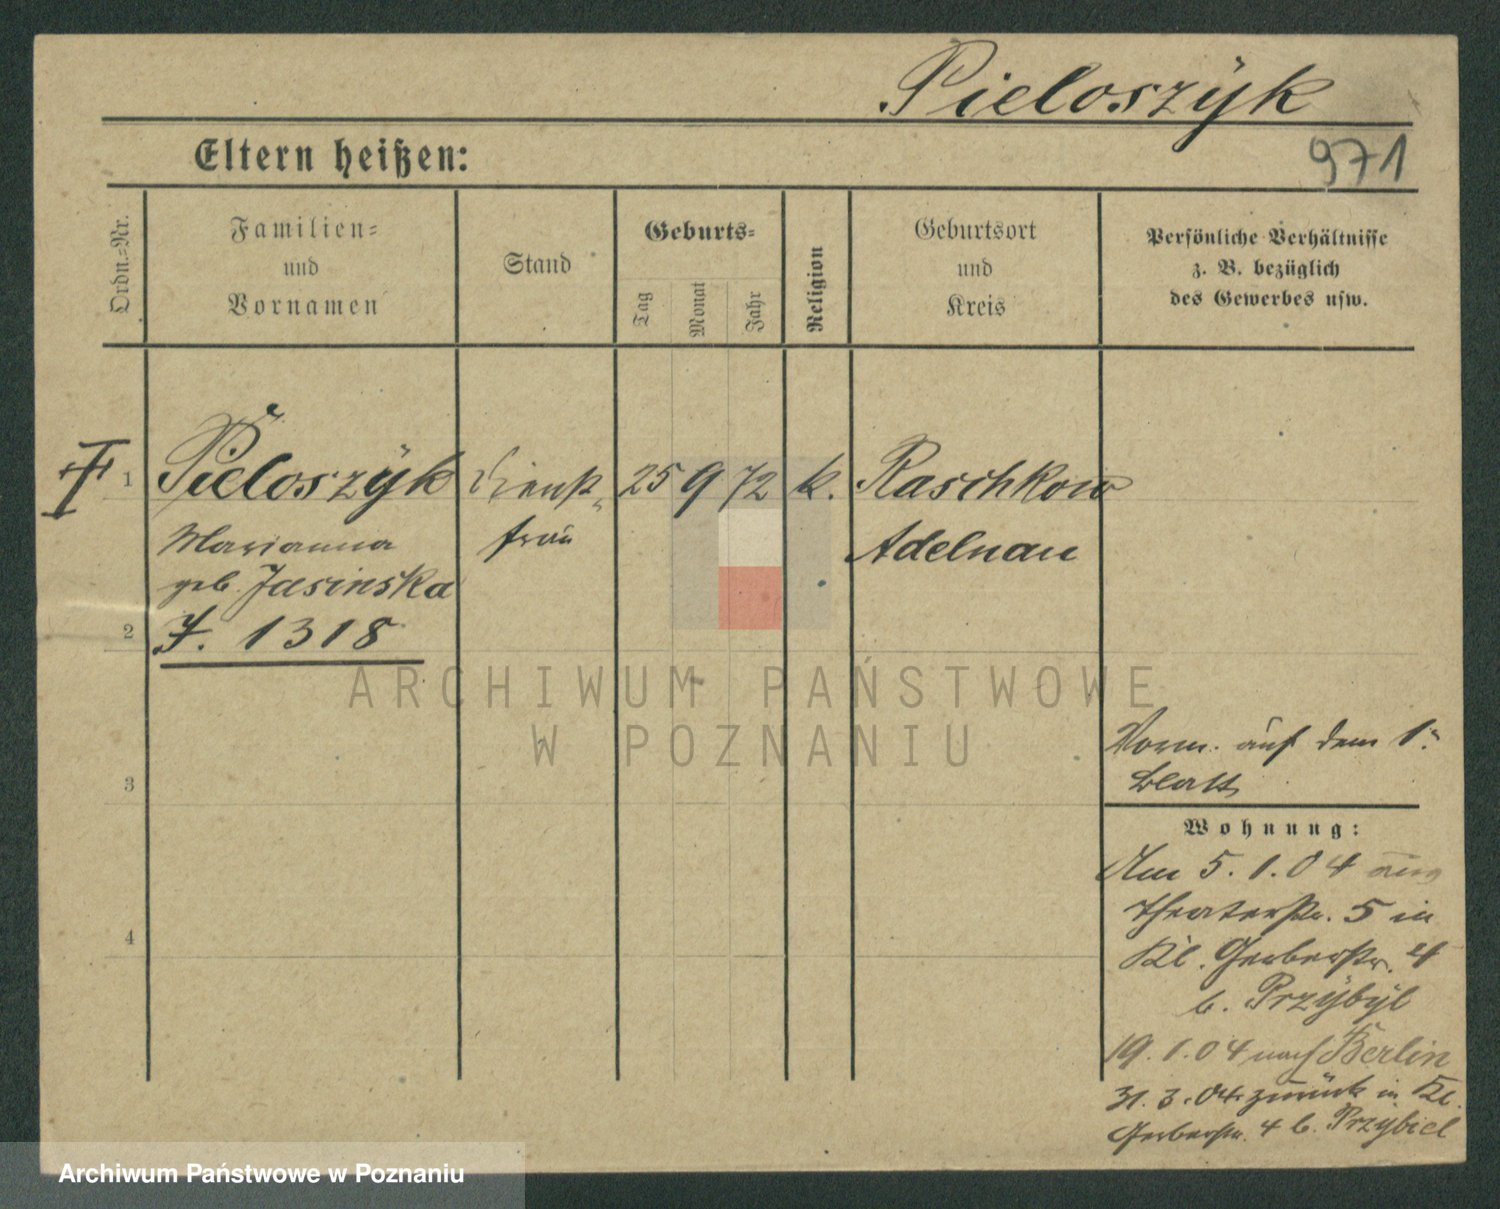 Pieloszÿk
971
Eltern heißen:
Ordn.-Nr.
Familien-
und
Vornamen
Stand
Geburts-
Tag
Monat
Jahr
Religion
Geburtsort
und
Kreis
Persönliche Verhältnisse
z. B. bezüglich
des Gewerbes usw.
II
1 Pieloszÿk Dienst- 25 9 72 k. Raschkow
Marianna frau Adelnau
geb. Jasinska
2 J. 1318
3
4
Verm. auf dem 1.
Blatt
Wohnung:
Am 5.1.04 aus
Theaterstr. 5 in
Kl. Gerberstr. 4
b. Przÿbÿl
19.1.04 nach Berlin
31.3.04 zurück in Kl.
Gerberstr. 4 b. Przybiel
ARCHIWUM PAŃSTWOWE
W POZNANIU
Archiwum Państwowe w Poznaniu